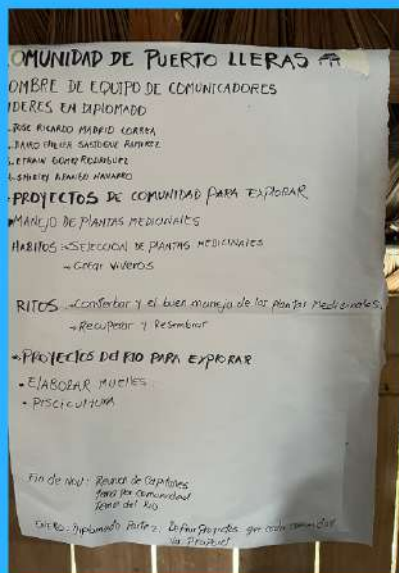 COMUNIDAD DE PUERTO LLERAS
OMBRE DE EQUIPO DE COMUNICADORES
IDERES EN DIPLOMADO
JOSE RICARDO MADRID CORREA
SASTOQUE RAMIREZ
EFRAIN GOMEZ RODRIGUEZ
SHIRLEY ARANGO NAVARRO
PROYECTOS DE COMUNIDAD PARA EXPLORAR
MANEJO DE PLANTAS MEDICINALES
HABITOS: SELECCION DE PLANTAS MEDICINALES
→ Crear Viveros
RITOS → Conserbar y el buen maneja de las plantas Medicinales.
→ Recuperar y Resembrar
PROYECTOS DEL RIO PARA EXPLORAR
• ELABORAR MUELLES
• PISCICULTURA
Fin de Nov: Reunion de Capitanes
por comunidad
Tema del Rio
Diplomado Parte 2. Definir Proyectos que cada comunidad
va